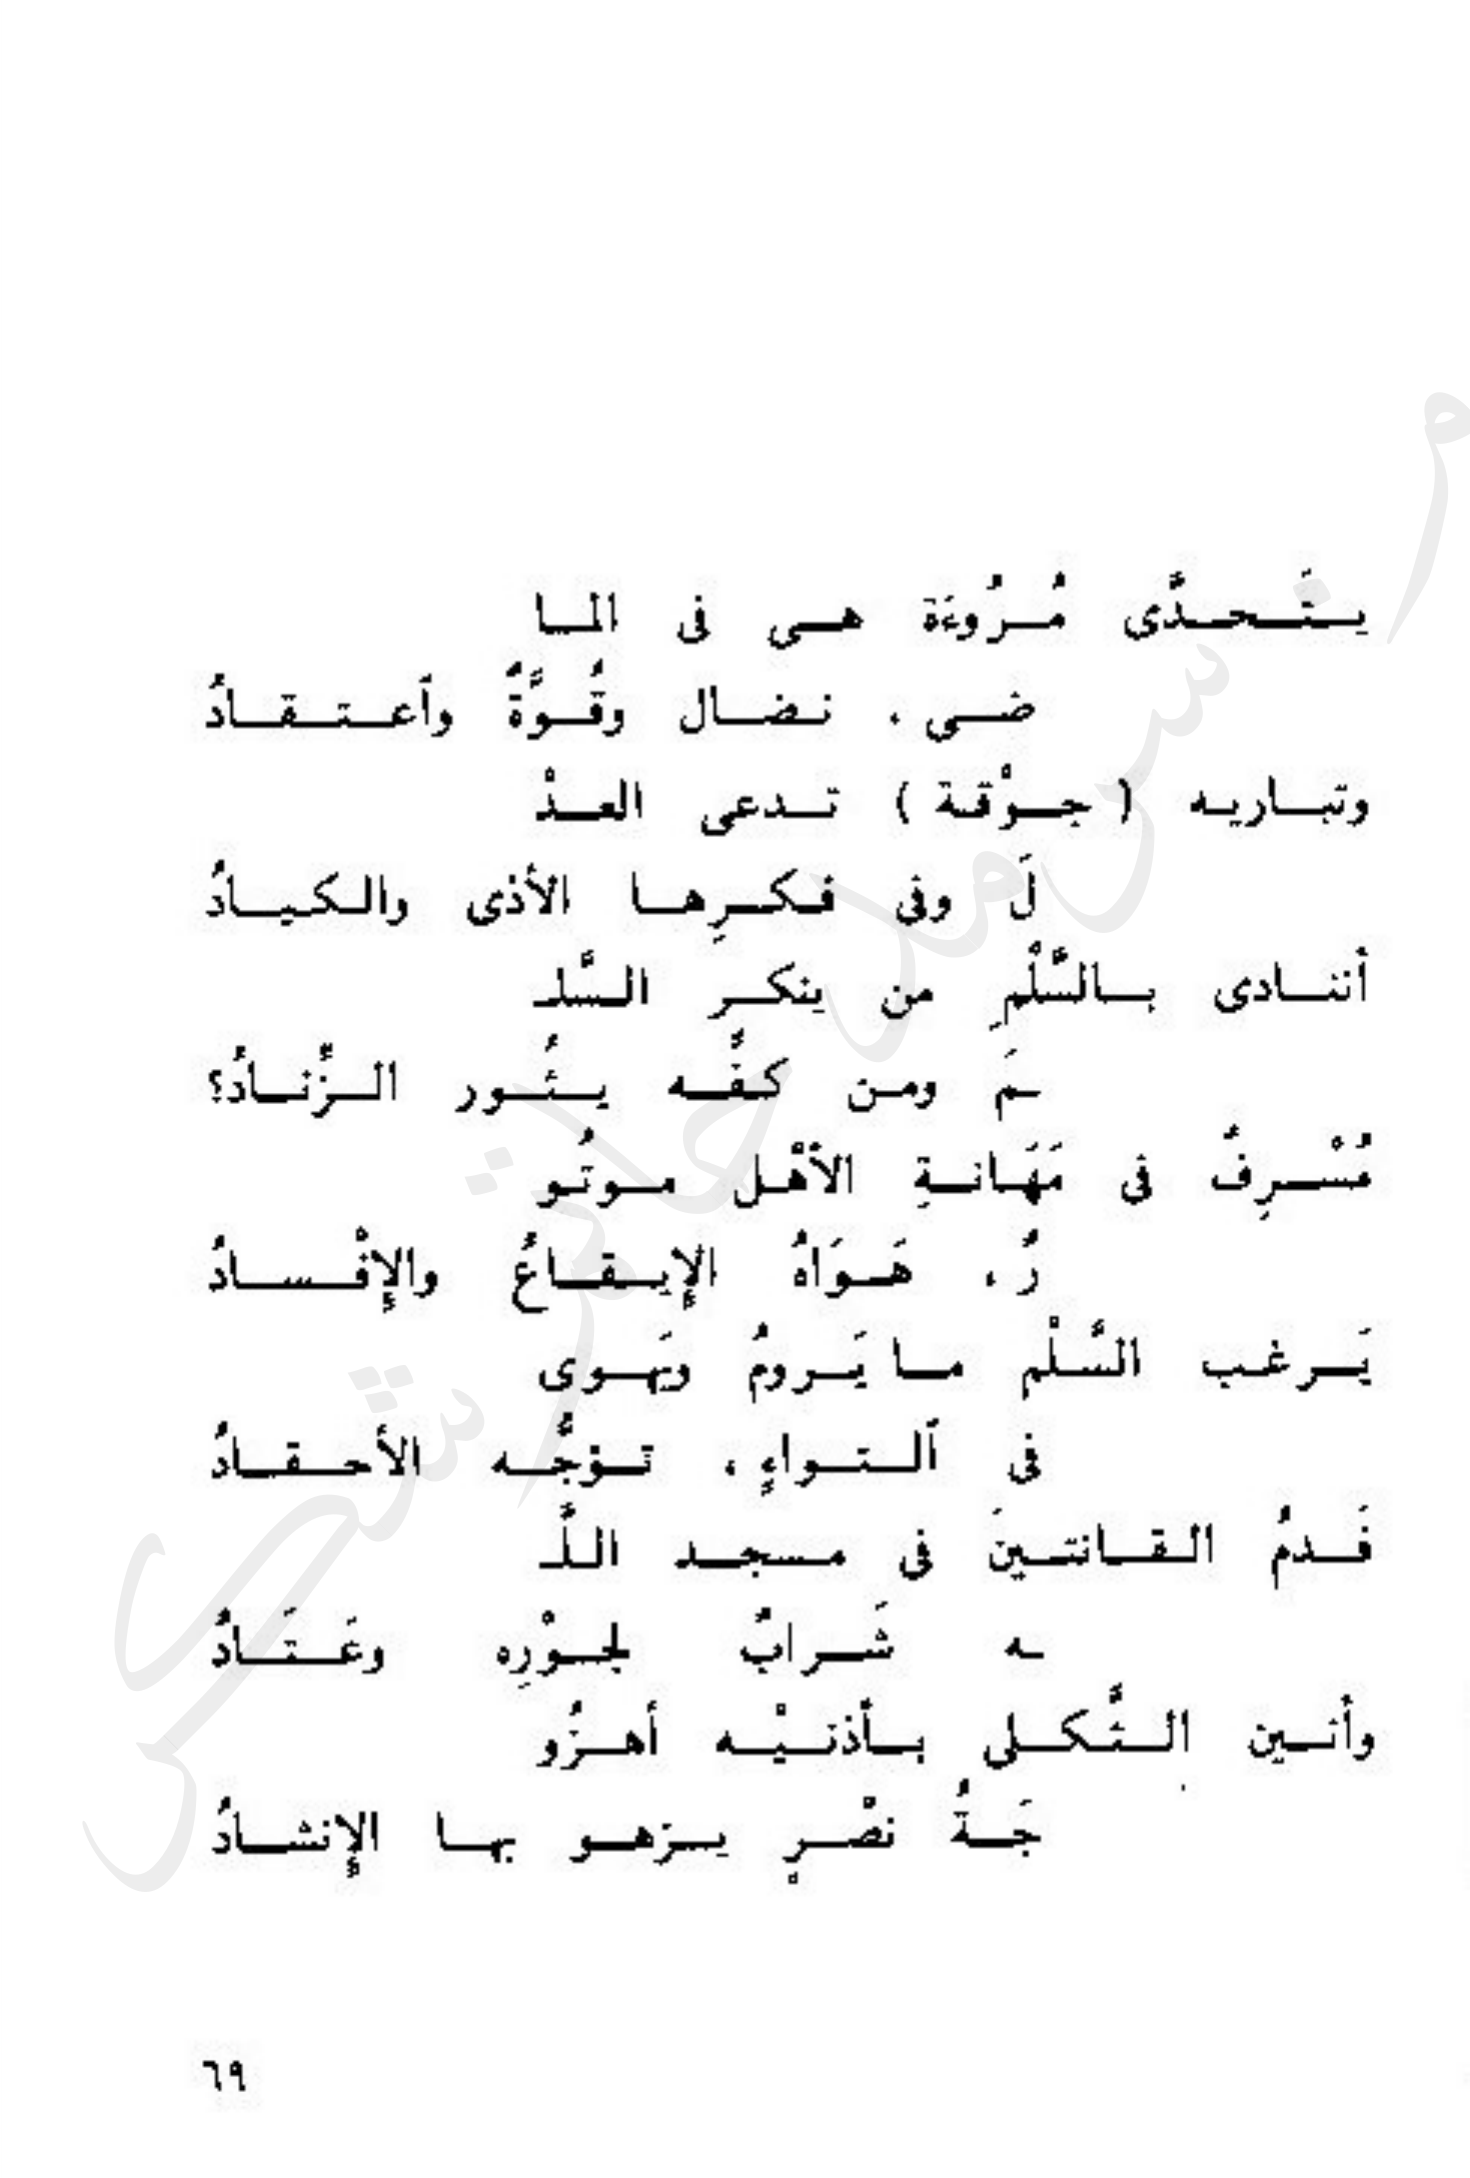 يتَحدَّى مُرُوءَة هى فى الما
ضى ، نضال وقُوَّةٌ وأعتقادُ
وتباريه ( جوْقة ) تدعى العدْ
لَ وفى فكرِها الأذى والكيادُ
أننادى بالسَّلْمِ من ينكر السَّلـ
ـمَ ومن كفُّه يثُور الزِّنادُ؟
مُسْرِفٌ فى مَهَانةِ الأهْل موتُو
رُ ، هَوَاهُ الإيقاعُ والإفْسادُ
يَرغب السَّلْم ما يَرومُ ويَهوى
فى ٱلتواءٍ ، تؤجُّه الأحقادُ
فَدمُ القانتينَ فى مسجد اللَّـ
ـه شَرابٌ لجوْرِه وعَتَادُ
وأنين الثَّكلى بأذنيْه أهزُو
جَةُ نصْرٍ يزهو بها الإنشادُ
٦٩